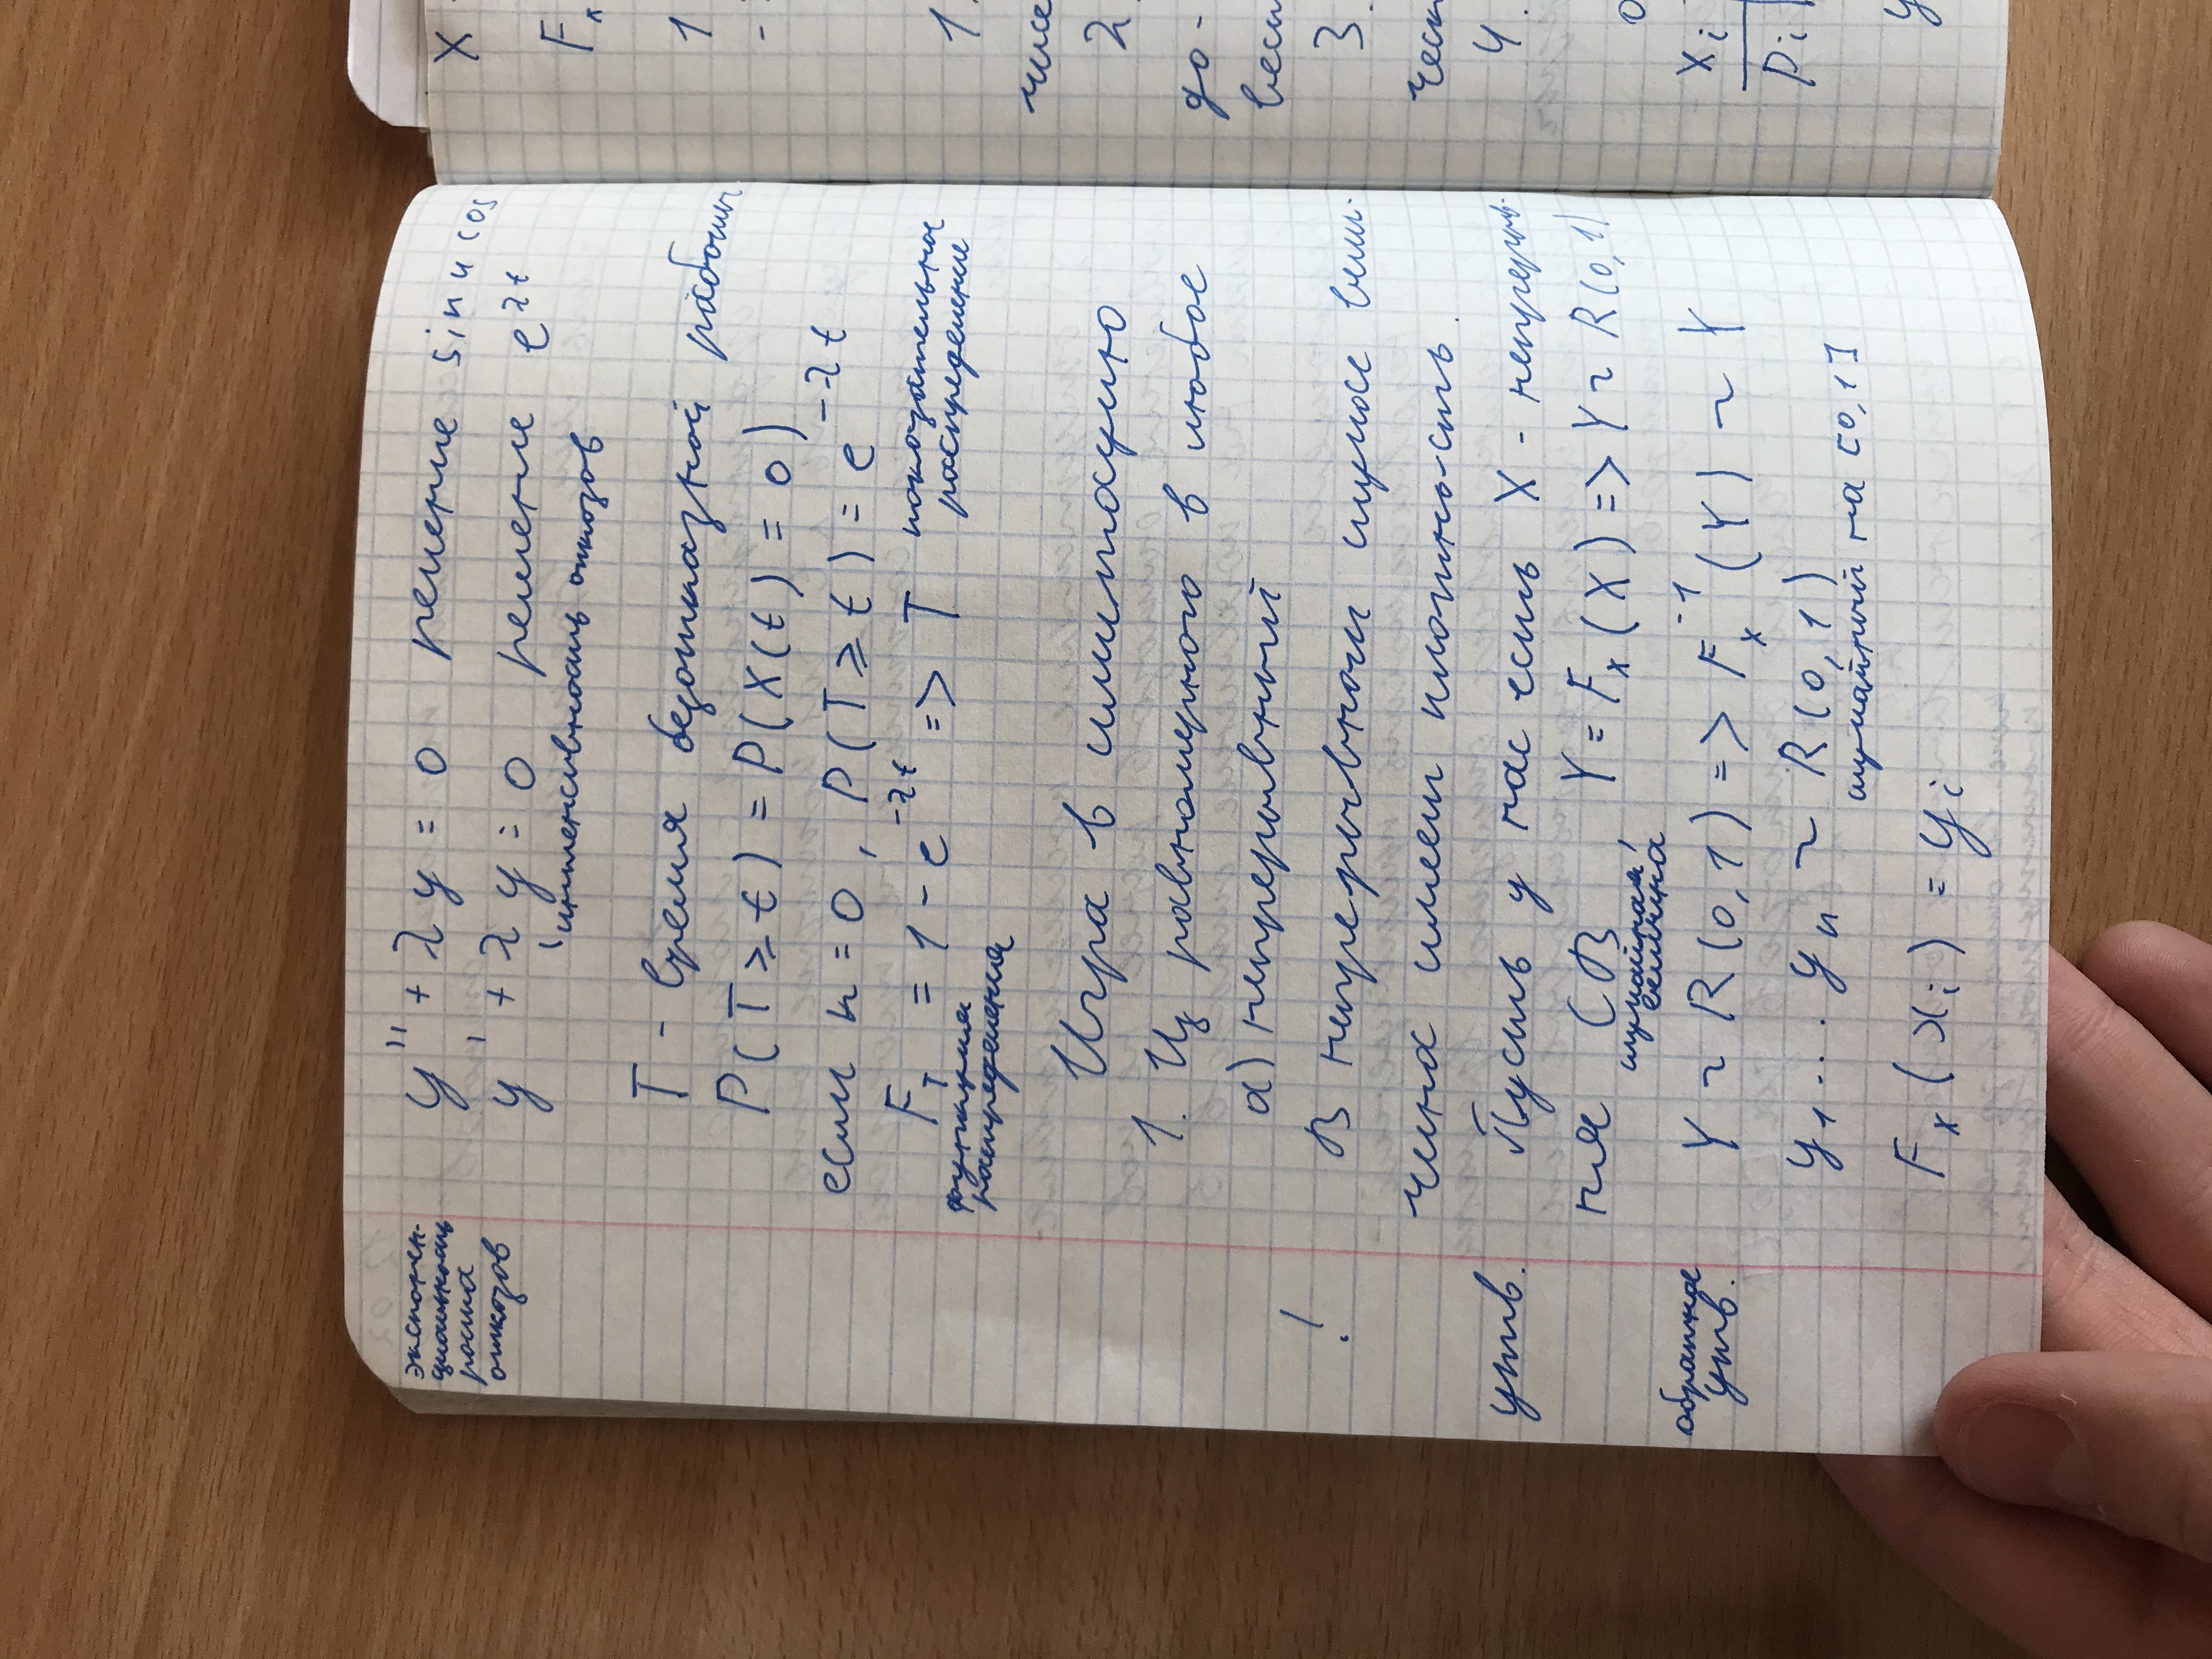 экспонен-
циальность
роста
отказов
y'' + λy = 0 решение sin и cos
y' + λy = 0 решение e^λt
интенсивность отказов
T - время безотказной работы
P(T ≥ t) = P(X(t) = 0)
если k = 0, P(T ≥ t) = e^-λt
F_T = 1 - e^-λt => T показательное
распределение
функция
распределения
Игра в имитацию
1. Из равномерного в любое
а) непрерывный
! В непрерывном случае вели-
чина имеет плотность.
утв. Пусть у нас есть X - непрерыв-
ная СВ, Y = F_x(X) => Y ~ R(0,1)
случайная
величина
обратное
утв.
Y ~ R(0,1) => F_x^-1(Y) ~ Y
y_1 ... y_n ~ R(0,1)
случайный на [0,1]
F_x(x_i) = y_i
X
F_x
1
-
1.
чисе
2.
до-
3.
ческ
4.
x_i
p_i
y